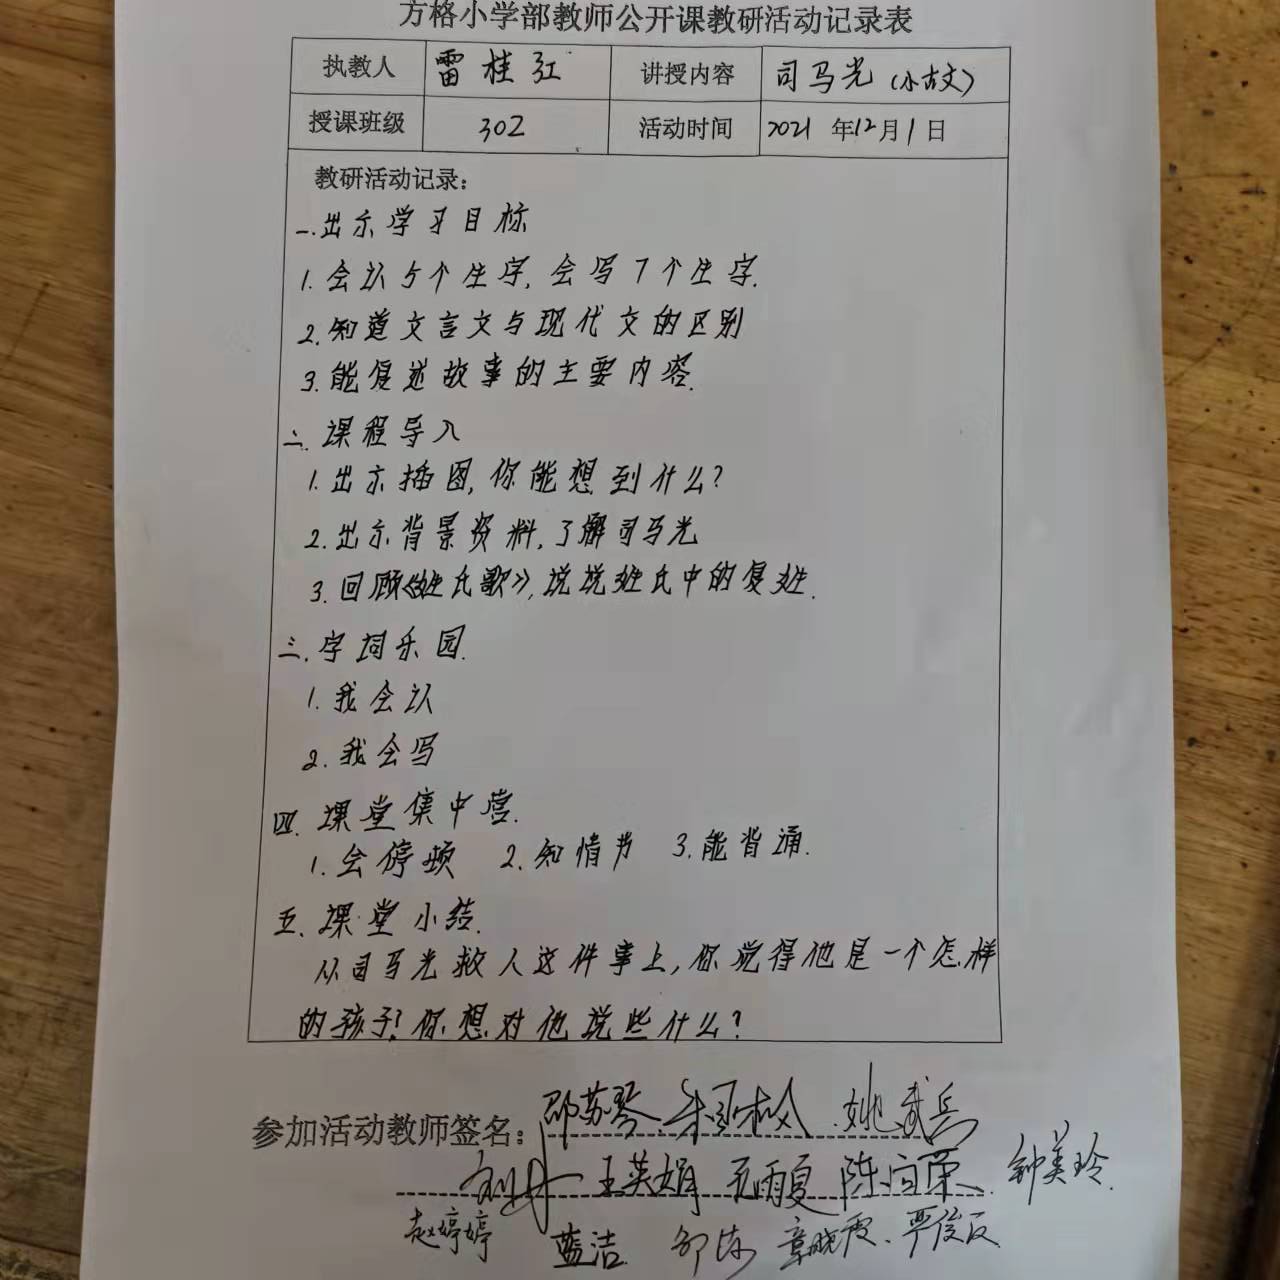 方格小学部教师公开课教研活动记录表
执教人 雷桂红 讲授内容 司马光（小古文）
授课班级 302 活动时间 2021年12月1日
教研活动记录：
一.出示学习目标
1.会认5个生字,会写7个生字.
2.知道文言文与现代文的区别
3.能复述故事的主要内容.
二.课程导入
1.出示插图,你能想到什么?
2.出示背景资料,了解司马光
3.回顾《姓氏歌》,说说姓氏中的复姓.
三.字词乐园.
1.我会认
2.我会写
四.课堂集中营.
1.会停顿 2.知情节 3.能背诵.
五.课堂小结.
从司马光救人这件事上,你觉得他是一个怎样
的孩子?你想对他说些什么?
参加活动教师签名：邵苏琴 姚武兵
王英娟 陈 荣 钟美玲
赵婷婷 蓝洁 章晓霞